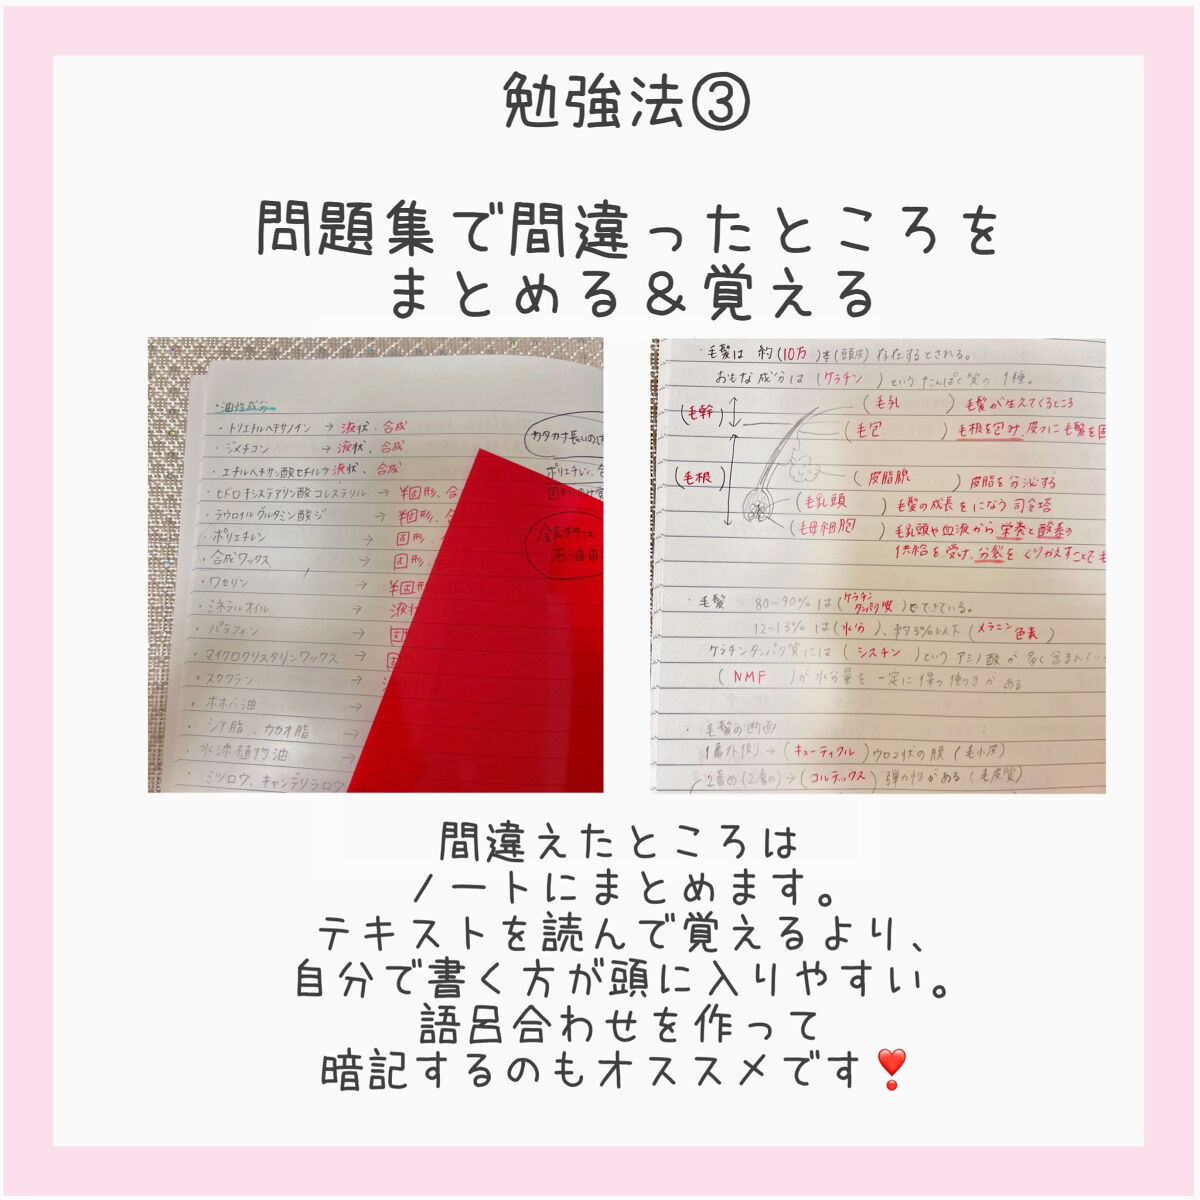 勉強法③
問題集で間違ったところを
まとめる＆覚える
・油性成分
・トリエチルヘキサノイン → 液状、合成
・ジメチコン → 液状、合成
・エチルヘキサン酸セチル→ 液状、合成
・ヒドロキシステアリン酸コレステリル → 半固形、合
・ラウロイルグルタミン酸ジ → 半固形、
・ポリエチレン → 固形、
・合成ワックス → 固形、
・ワセリン → 半固形
・ミネラルオイル → 液状
・パラフィン →
・マイクロクリスタリンワックス →
・スクワラン →
・ホホバ油 →
・シア脂、カカオ脂 →
・水添植物油 →
・ミツロウ、キャンデリラロウ
カタカナ長いのは
ポリエチレン、合
鉱物は
石油由
・毛髪は 約(10万)本(頭皮)存在するとされる。
おもな成分は(ケラチン)というたんぱく質の1種。
(毛幹)
(毛根)
(毛孔) 毛髪が生えてくるところ
(毛包) 毛根を包み、皮フに毛髪を固
(皮脂腺) 皮脂を分泌する
(毛乳頭) 毛髪の成長をになう司令塔
(毛母細胞) 毛乳頭や血液から栄養と酸素の
供給を受け、分裂をくりかえすことで毛
・毛髪 80〜90%は(ケラチンタンパク質)でできている。
12〜13%は(水分)、約3%以下(メラニン色素)
ケラチンタンパク質には(シスチン)というアミノ酸が多く含まれてい
(NMF)が水分量を一定に保つ働きがある
・毛髪の断面
1番外側→(キューティクル)ウロコ状の膜(毛小皮)
2番め(2層め)→(コルテックス)弾力性がある(毛皮質)
間違えたところは
ノートにまとめます。
テキストを読んで覚えるより、
自分で書く方が頭に入りやすい。
語呂合わせを作って
暗記するのもオススメです❣️